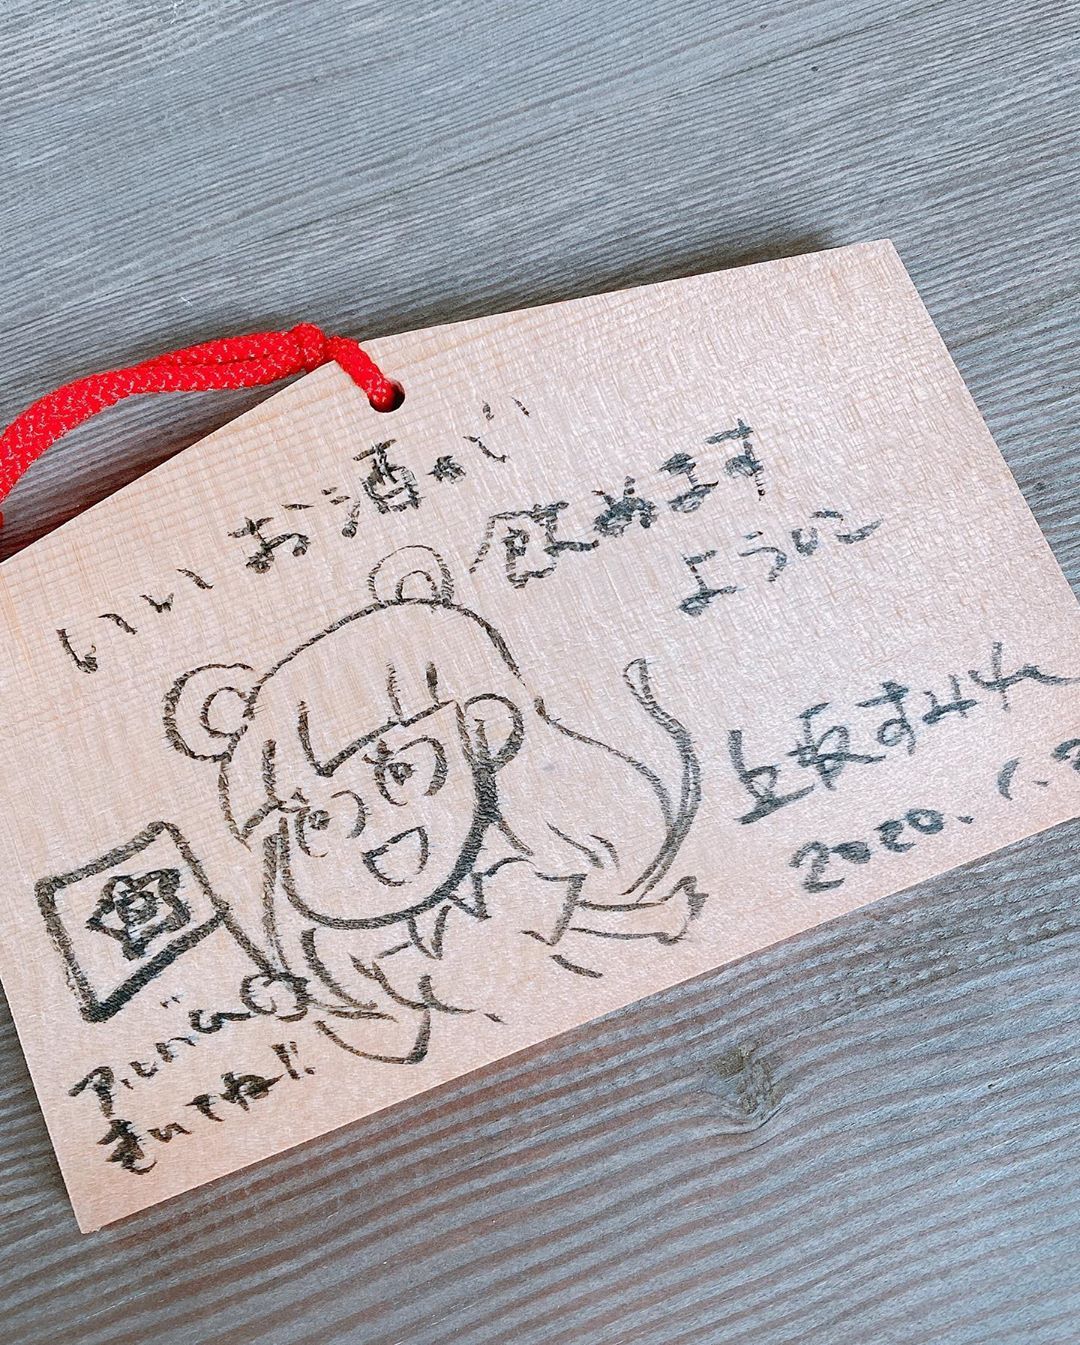 いい お酒が
飲めます
ように
上坂すみれ
2020. 1.
アルバム
きいてね!!